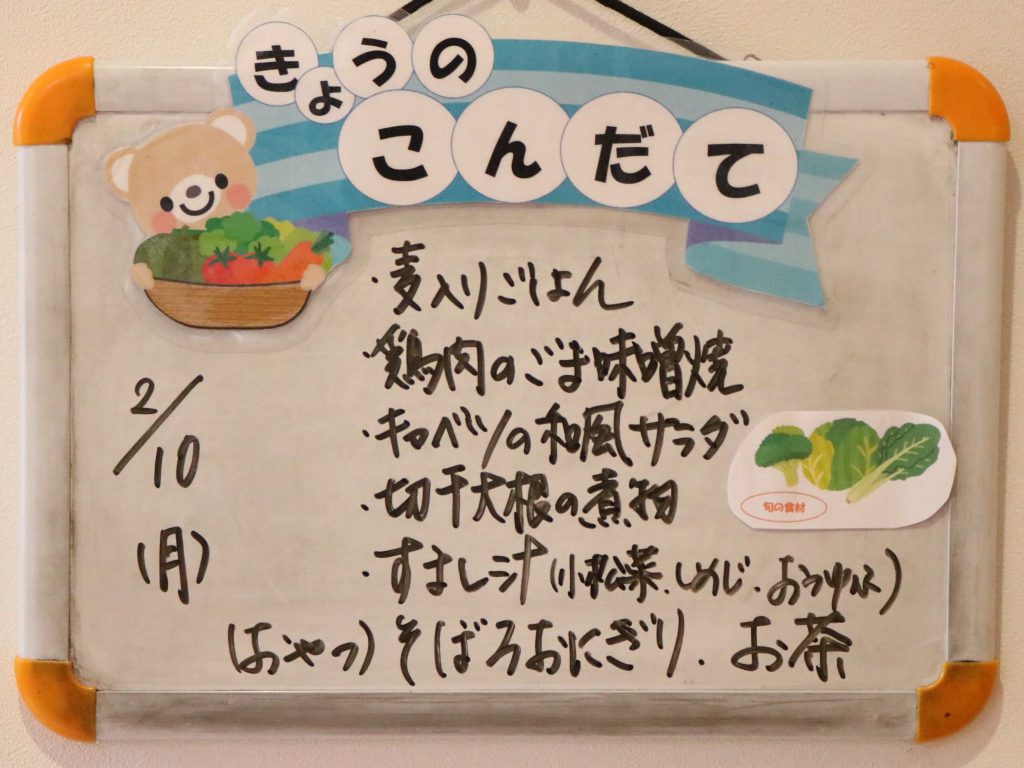 きょうの
こんだて
2/10
(月)
・麦入りごはん
・鶏肉のごま味噌焼
・キャベツの和風サラダ
・切干大根の煮物
・すまし汁(小松菜、しめじ、おつゆふ)
(おやつ)そぼろおにぎり、お茶
旬の食材